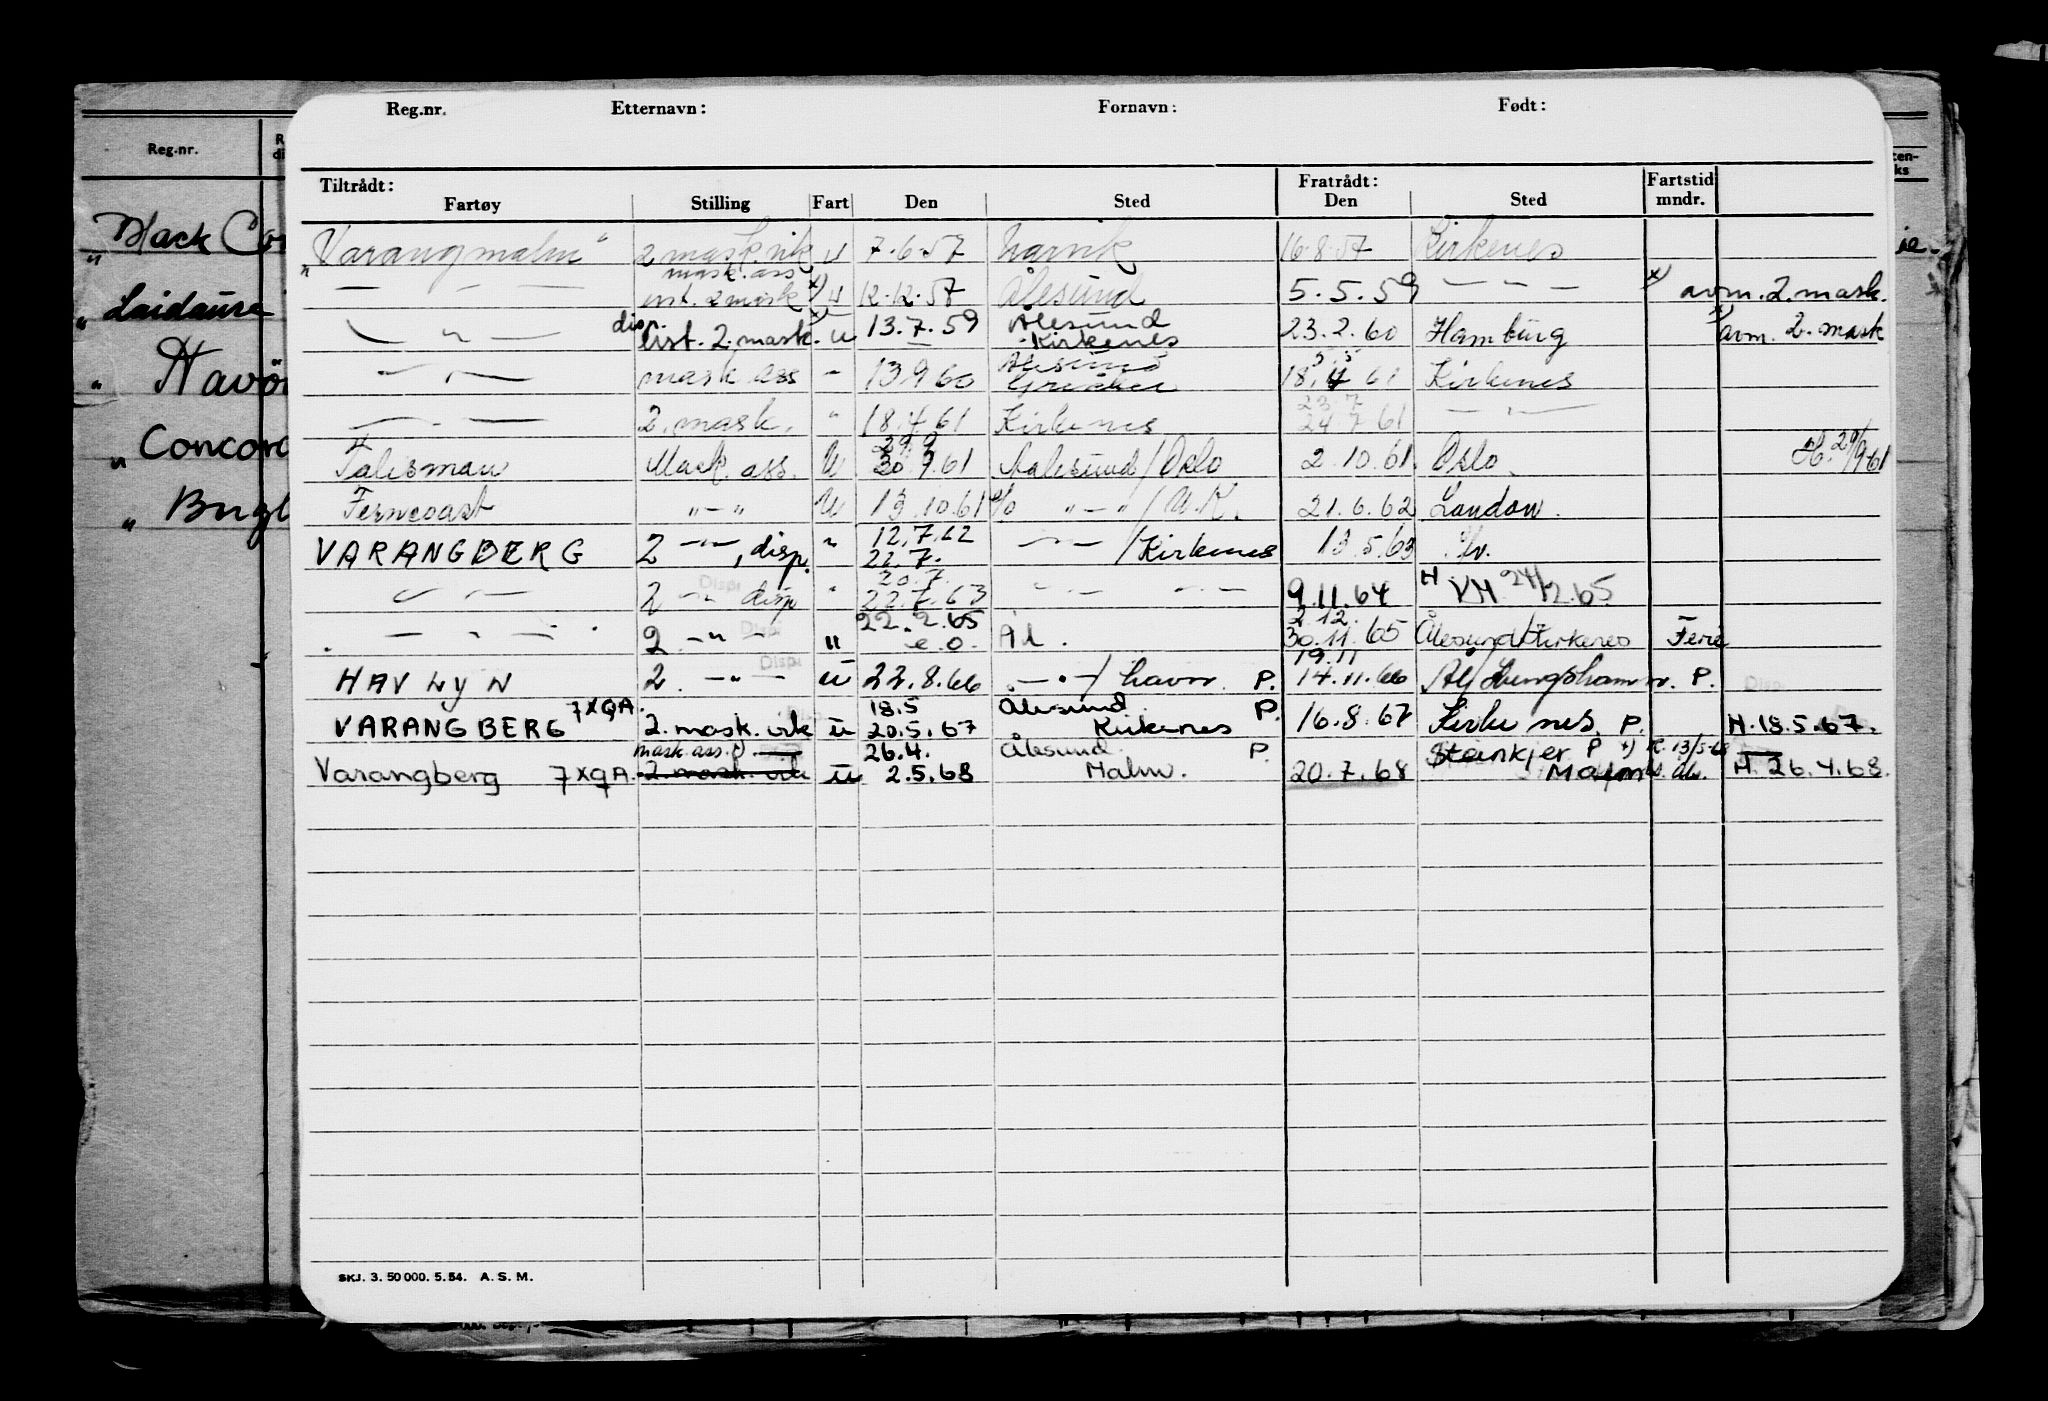 Reg.nr. Etternavn: Fornavn: Født:
Reg.nr.
Tiltrådt: Fratrådt: Fartstid
Fartøy Stilling Fart Den Sted Den Sted mndr.
"Varangmalm" 2 mask vik u 7.6.57 Narvik 16.8.57 Kirkenes
mask. ass
— " — 2 mask x) u 12.12.57 Ålesund 5.5.59 — " — x) avm. 2. mask.
disp. x) Ålesund x)
— " — 2. mask. u 13.7.59 Kirkenes 23.2.60 Hamburg avm. 2. mask
Ålesund 5.5
— " — mask ass " 13.9.60 18.4.61 Kirkenes
23.7
— " — 2. mask. " 18.4.61 Kirkenes 24.7.61 — " —
29.9
Talisman Mask. ass. U 30.9.61 Aalesund/Oslo 2.10.61 Oslo. H. 29/9-61
Ferncoast " — " U 13.10.61 " — "/U.K. 21.6.62 London.
12.7.62
VARANGBERG 2 — " —, disp. " 22.7. — " —/Kirkenes 13.5.63
20.7.
— " — 2 — " — disp " 22.7.63 — " — — " — 9.11.64 H. 24/2.65
22.2.65 2.12.
— " — 2. — " — " e.o. Ål. 30.11.65 Ålesund/Kirkenes Ferie
19.11
HAVLYN 2. — " — u 22.8.66 — " —/havn P. 14.11.66 Ål/Lungshamn. P.
7XQA. 18.5 Ålesund P.
VARANGBERG 2. mask. vik u 20.5.67 Kirkenes 16.8.67 Kirkenes. P. H. 18.5.67.
mask ass. 26.4. Ålesund P. Steinkjer P 13/5-68
Varangberg 7XQA. 2. mask. vik u 2.5.68 Malm. 20.7.68 Malm H. 26.4.68.
"Black Co
"Laidaure
" Havö
"Concord
" Bugl
SKJ. 3. 50 000. 5. 54. A. S. M.